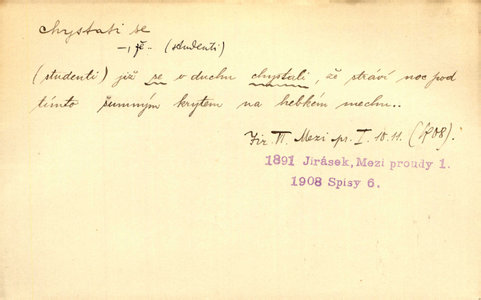 chystati se
–, že.. (studenti)
(studenti) již se v duchu chystali, že stráví noc pod
tímto šumným krytem na hebkém mechu..
Jir. VI. Mezi pr. I. 10.11. (R08).
1891 Jirásek, Mezi proudy 1.
1908 Spisy 6.